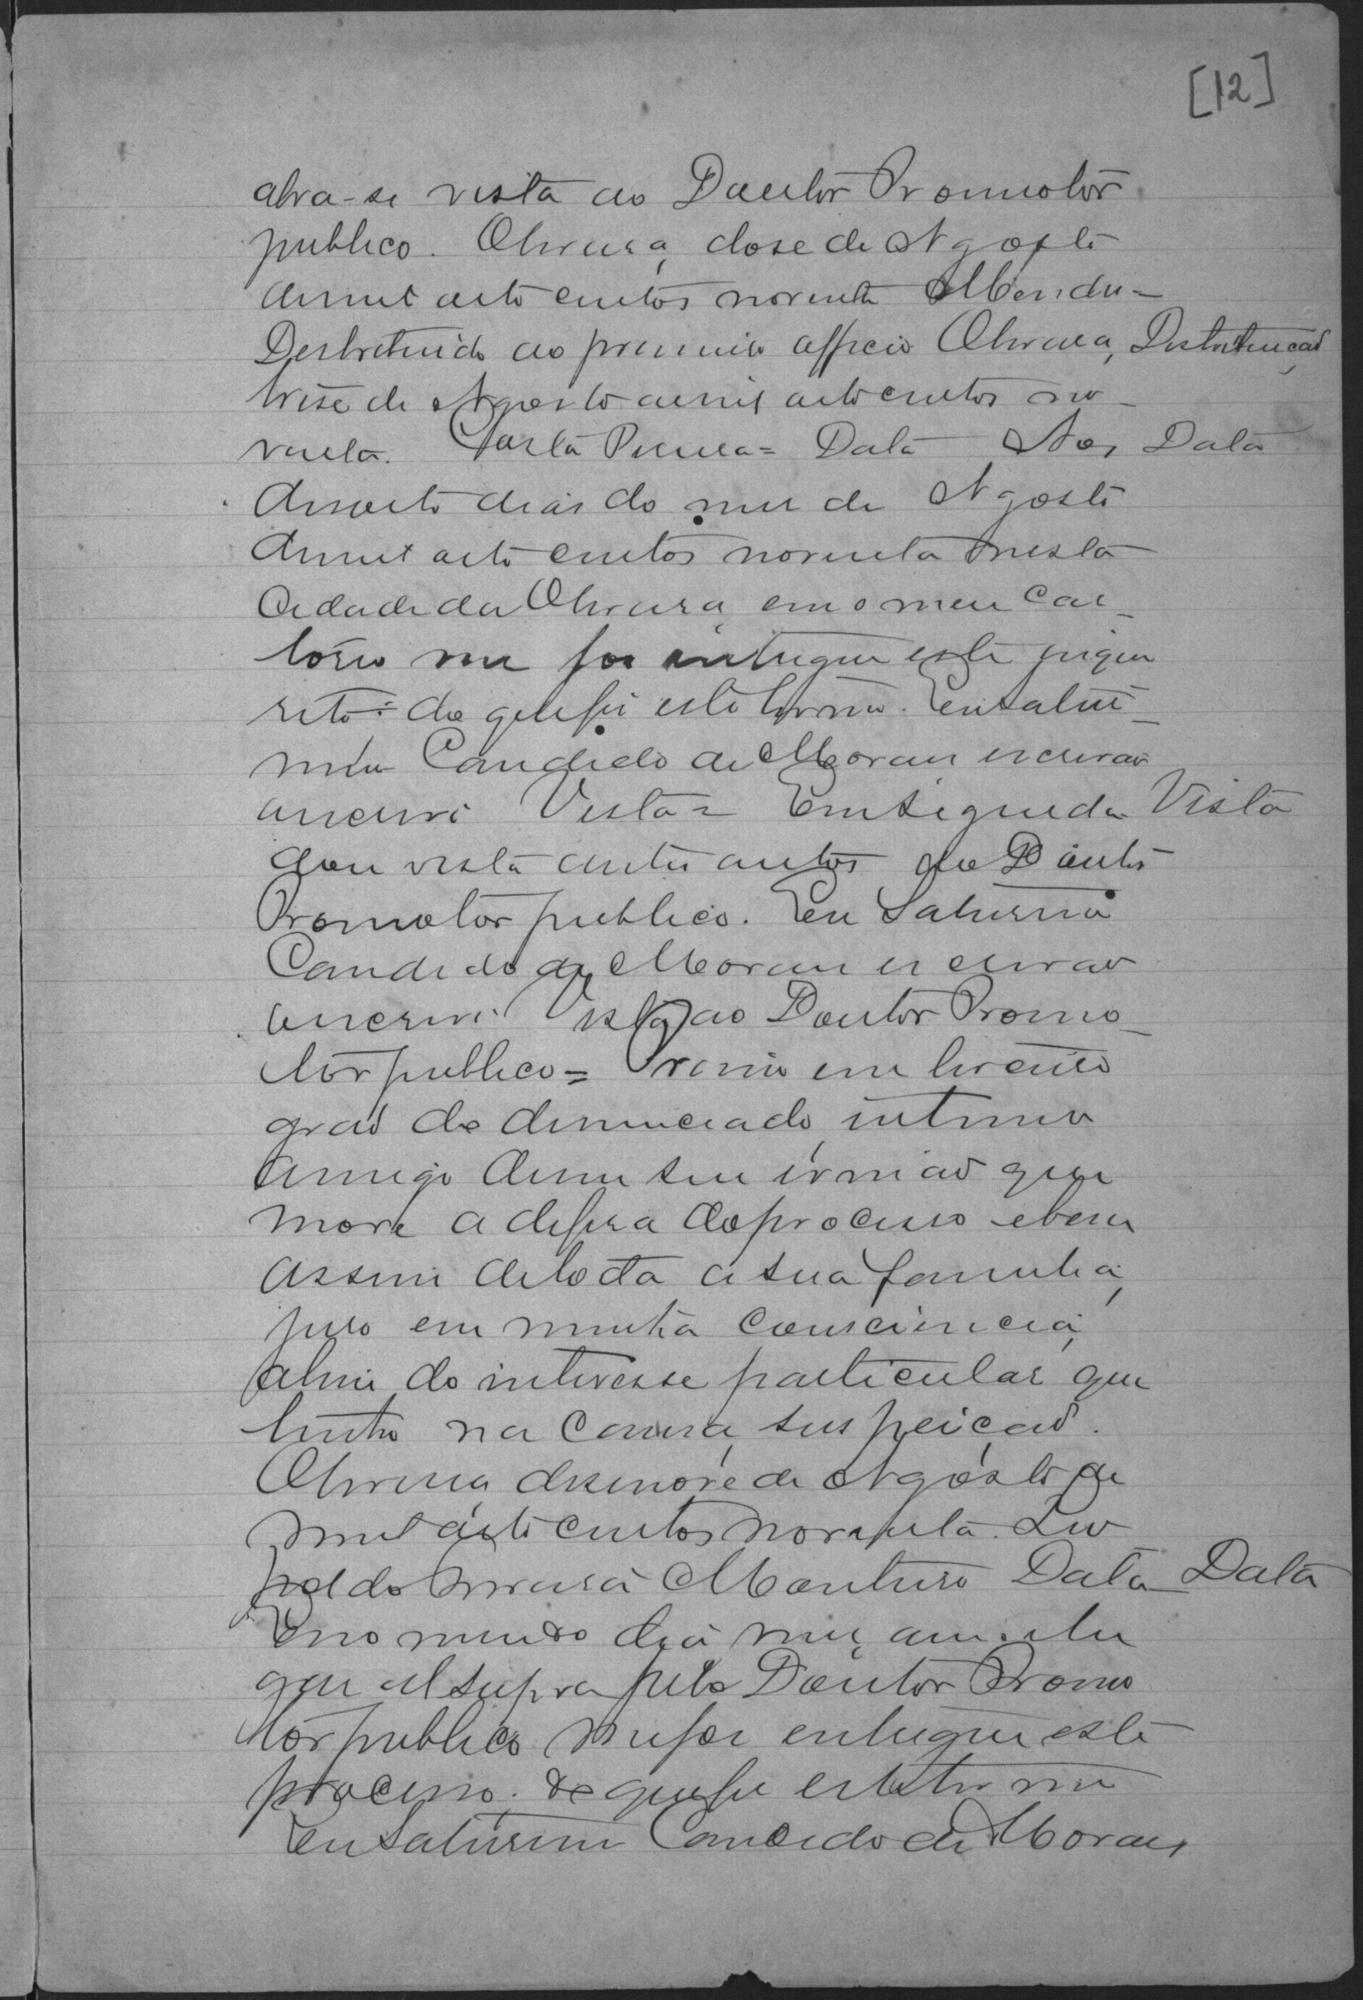 [12]
abra-se vista ao Doutor Promotor
publico. Oliveira, dose de Agosto
de mil oito centos noventa Mendes =
Destribuido ao primeiro officio Oliveira, Distribuiçaõ
trese de Agosto de mil oito centos no-
venta. Costa Pereira = Data Aos Data
desoito dias do mes de Agosto
de mil oito centos noventa nesta
Cidade da Oliveira em o meu Car-
torio me foi entregue este inque-
rito: do que fis este termo. Eu Satur-
nino Candido de Moraes escrivaõ
o escrevi Vista = Em seguida Vista
dou vista destes autos ao Doutor
Promotor publico. Eu Saturnino
Candido de Moraes escrivaõ
o escrevi. Vista ao Doutor Promo-
tor publico = Primo em terceiro
graõ do denunciado, intimo
amigo de um seu irmaõ que
move a defesa do processo e bem
assim de toda a sua familia,
juro em minha consciencia,
alem do interesse particular que
tenho na causa, suspeiçaõ.
Oliveira desenove de Agosto de
mil oito centos noventa. Leo-
poldo Monteiro Data Data
Em o mesmo dia mes, anno
que supra pelo Doutor Promo
tor publico me foi entregue este
processo. do que fis este termo
Eu Saturnino Candido de Moraes